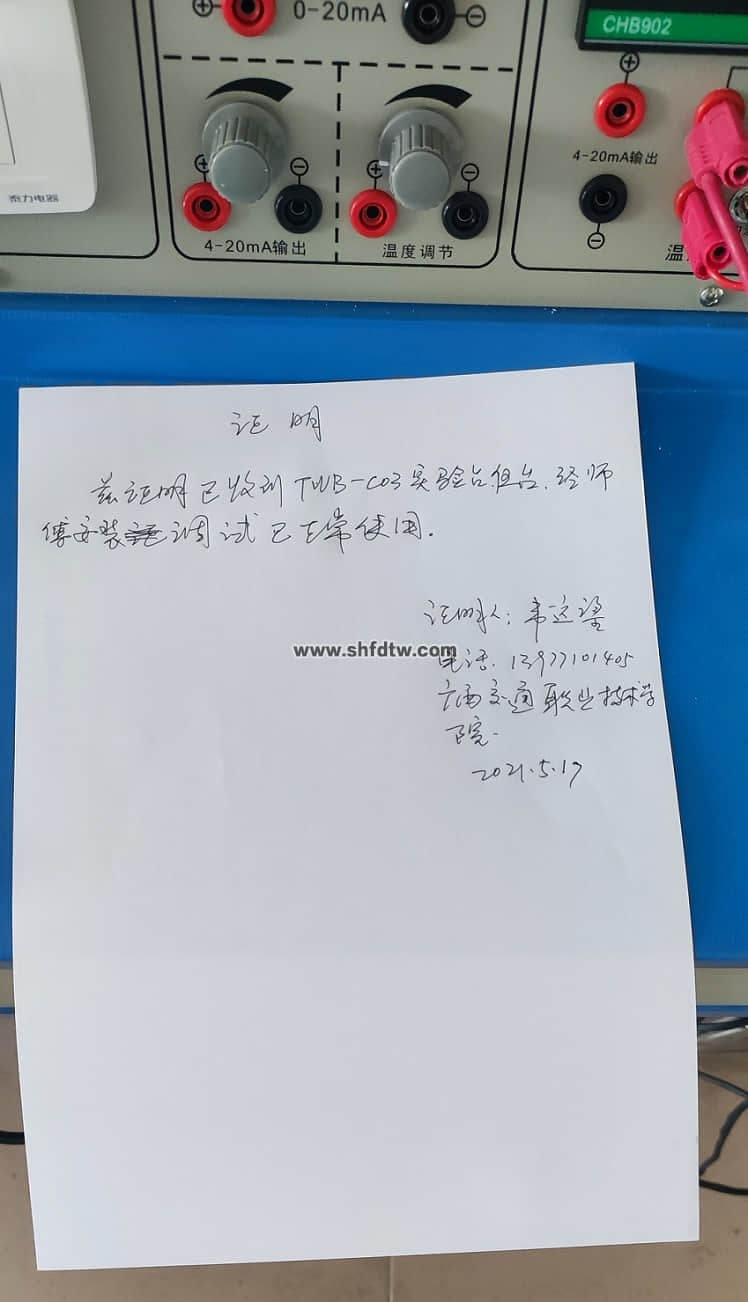 0-20mA
CHB902
4-20mA输出
泰力电器
4-20mA输出
温度调节
温
证明
兹证明已收到TWB-C03实验台但台.经师
傅安装调试已正常使用.
证明人:韦这梁
www.shfdtw.com
电话.13977101405
广西交通职业技术学
院.
2021.5.17